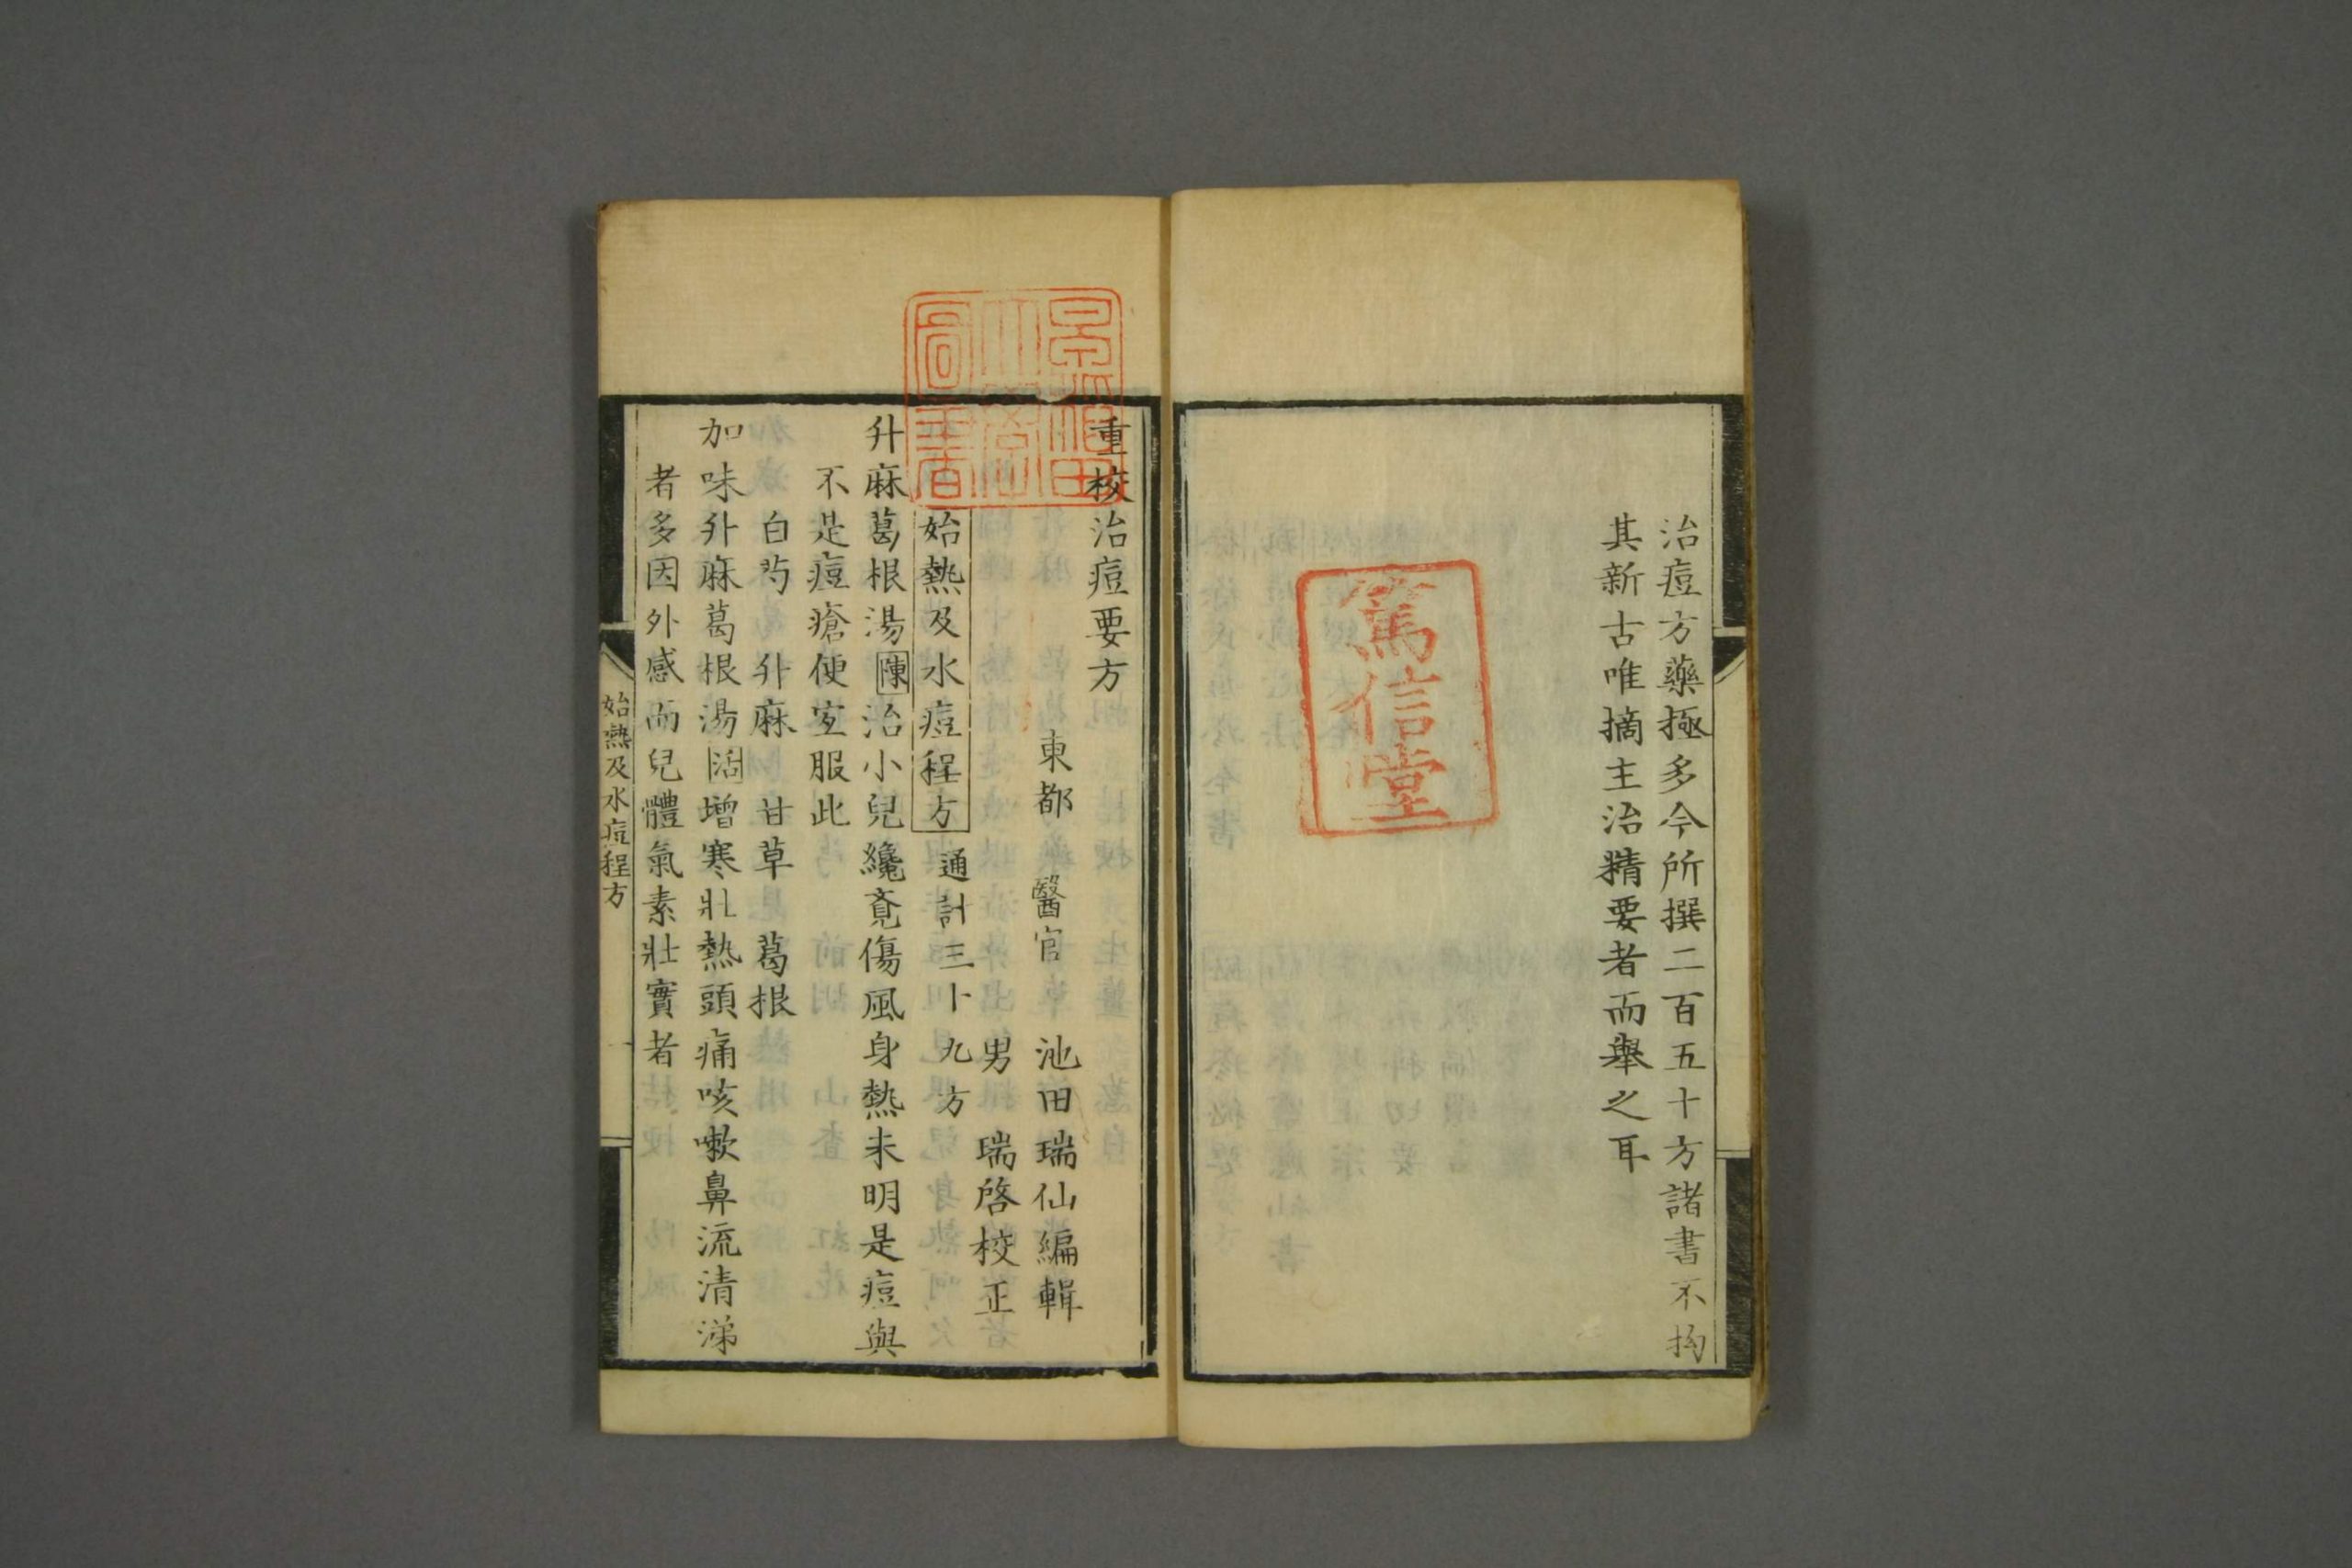 治痘方藥極多今所撰二百五十方諸書不拘
其新古唯摘主治精要者而舉之耳
篤信堂
重校治痘要方
東都 醫官 池田瑞仙編輯
男 瑞啓校正
始熱及水痘程方 通計三十九方
升麻葛根湯陳治小兒纔覔傷風身熱未明是痘與
不是痘瘡便宜服此
白芍 升麻 甘草 葛根
加味升麻葛根湯活增寒壯熱頭痛咳嗽鼻流清涕
者多因外感而兒體氣素壯實者
始熱及水痘程方